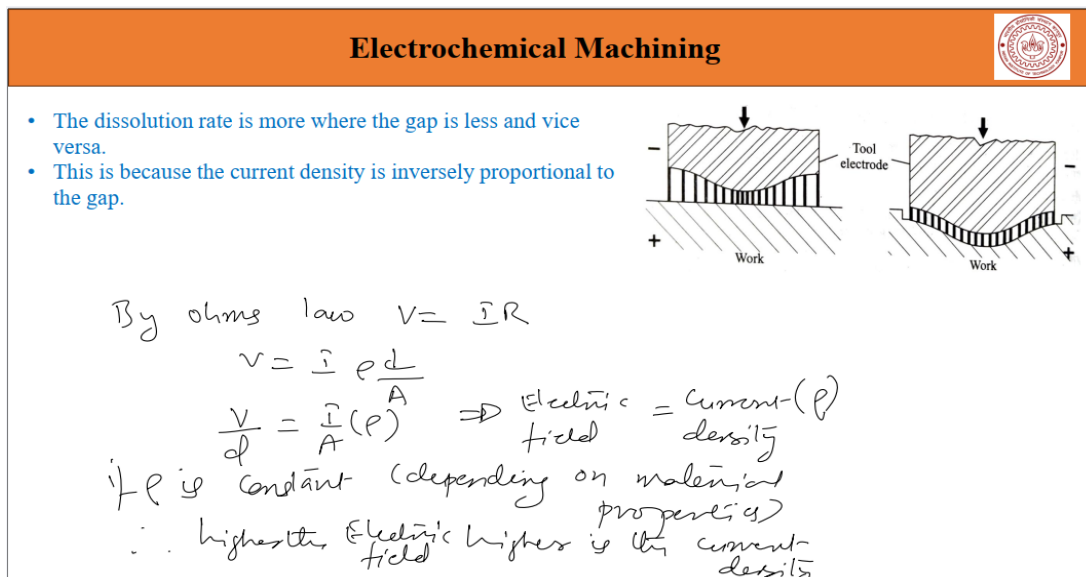 Electrochemical Machining
• The dissolution rate is more where the gap is less and vice
versa.
• This is because the current density is inversely proportional to
the gap.
Tool
electrode
−
+
Work
−
+
Work
By ohms law V = IR
V = I ρ d/A
V/d = I/A (ρ) ⇒ Electric field = Current density (ρ)
if ρ is constant (depending on material
properties)
∴ higher the Electric field higher is the current
density